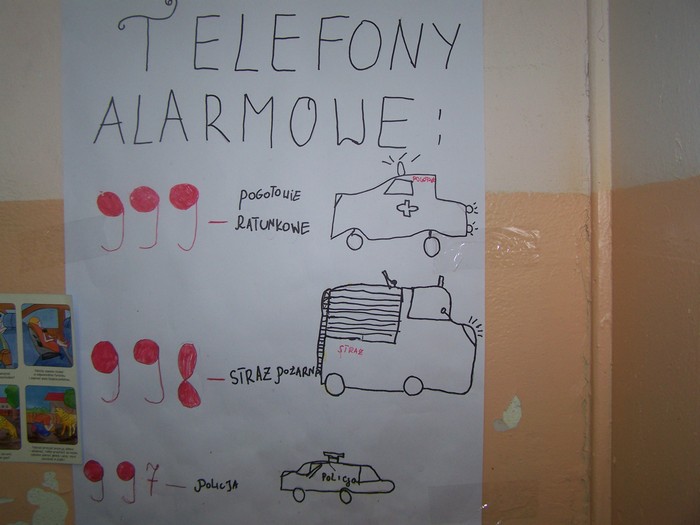 TELEFONY
ALARMOWE:
999 — POGOTOWIE
RATUNKOWE
POGOTOWIE
998 — STRAŻ POŻARNA
STRAŻ
997 — POLICJA
POLICJA